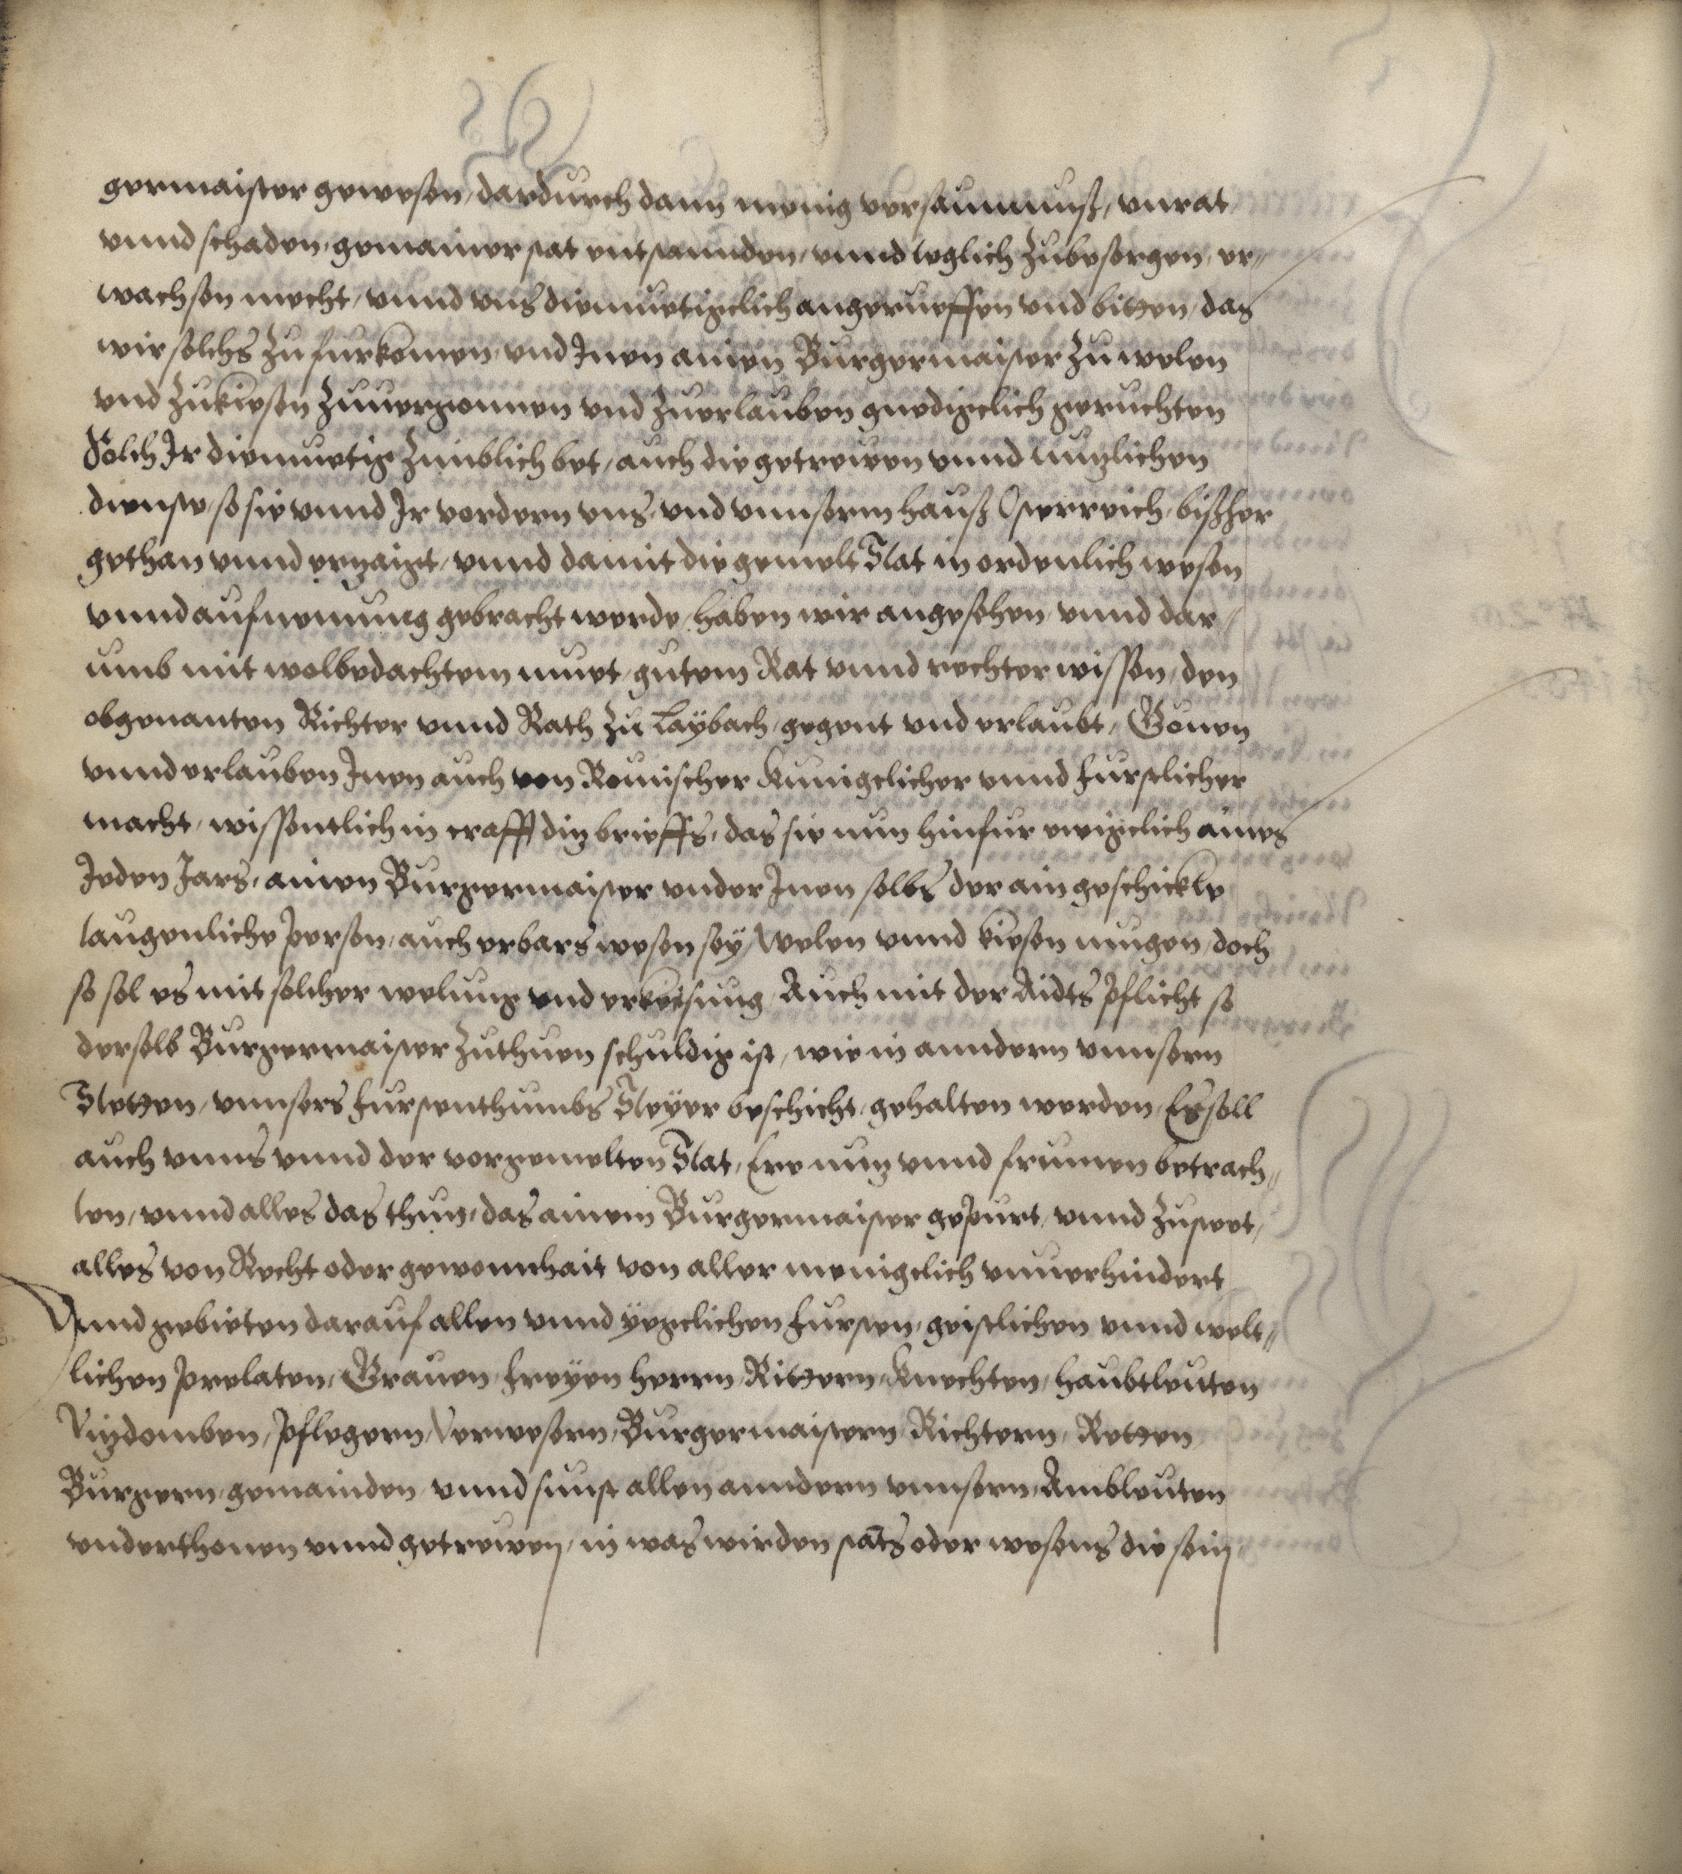 germaister gewesen, dardurch dann menig versaumnuß, vnrat
vnnd schaden, gemainer stat entstannden, vnnd teglich zubesorgen, er„
wachsen mecht, vnnd vns diemuetigclich angerueffen vnd bitten, das
wir solchs zu furkomen, vnd Inen ainen Burgermaister zu welen
vnd zukiesen zuuergonnen vnd zuerlauben gnedigclich geruchten
Solch Ir diemuetig zimblich bet, auch die getrewen vnnd nutzlichen
dienste, so sie vnnd Ir vordern vns, vnd vnnserm hauß Osterreich, bißher
gethan vnnd erzaigt, vnnd damit die gemelt Stat in ordenlich wesen
vnnd aufnemung gebracht werde, haben wir angesehen vnnd dar„
umb mit wolbedachtem muet, gutem Rat vnnd rechter wissen, den
obgenanten Richter vnnd Rath zu Laybach, gegent vnd erlaubt, Gonen
vnnd erlauben Inen auch von Romischer Kunigclicher vnnd furstlicher
macht, wissentlich in crafft ditz brieffs, das sie nun hinfur ewigclich aines
Jeden Jars, ainen Burgermaister vnder Inen selbs der ain geschickte
taugenliche person, auch erbars wesen sey, welen vnnd kiesen mugen, doch
so sol es mit solcher welung vnd erkeisung, Auch mit der Aidts pflicht so
derselb Burgermaister zuthuen schuldig ist, wie in anndern vnnsern
Stetten, vnnsers furstenthumbs Steyer beschicht, gehalten werden, Er soll
auch vnns vnnd der vorgemelten Stat, Ere nutz vnnd frumen betrach„
ten, vnnd alles das thun, das ainem Burgermaister gepurt, vnnd zusteet,
alles von Recht oder gewonnhait von aller menigclich vnuerhindert
Vnnd gebieten darauf allen vnnd yegclichen fursten, geistlichen vnnd welt„
lichen prelaten, Grauen, freyen herrn, Rittern, Knechten, haubtleuten
Vitzdomben, pflegern, Verwesern, Burgermaistern, Richtern, Retten
Burgern, gemainden vnnd sunst allen anndern vnnsern, Ambleuten
vnderthonen vnnd getrewen, in was wirden stats oder wesens die sein